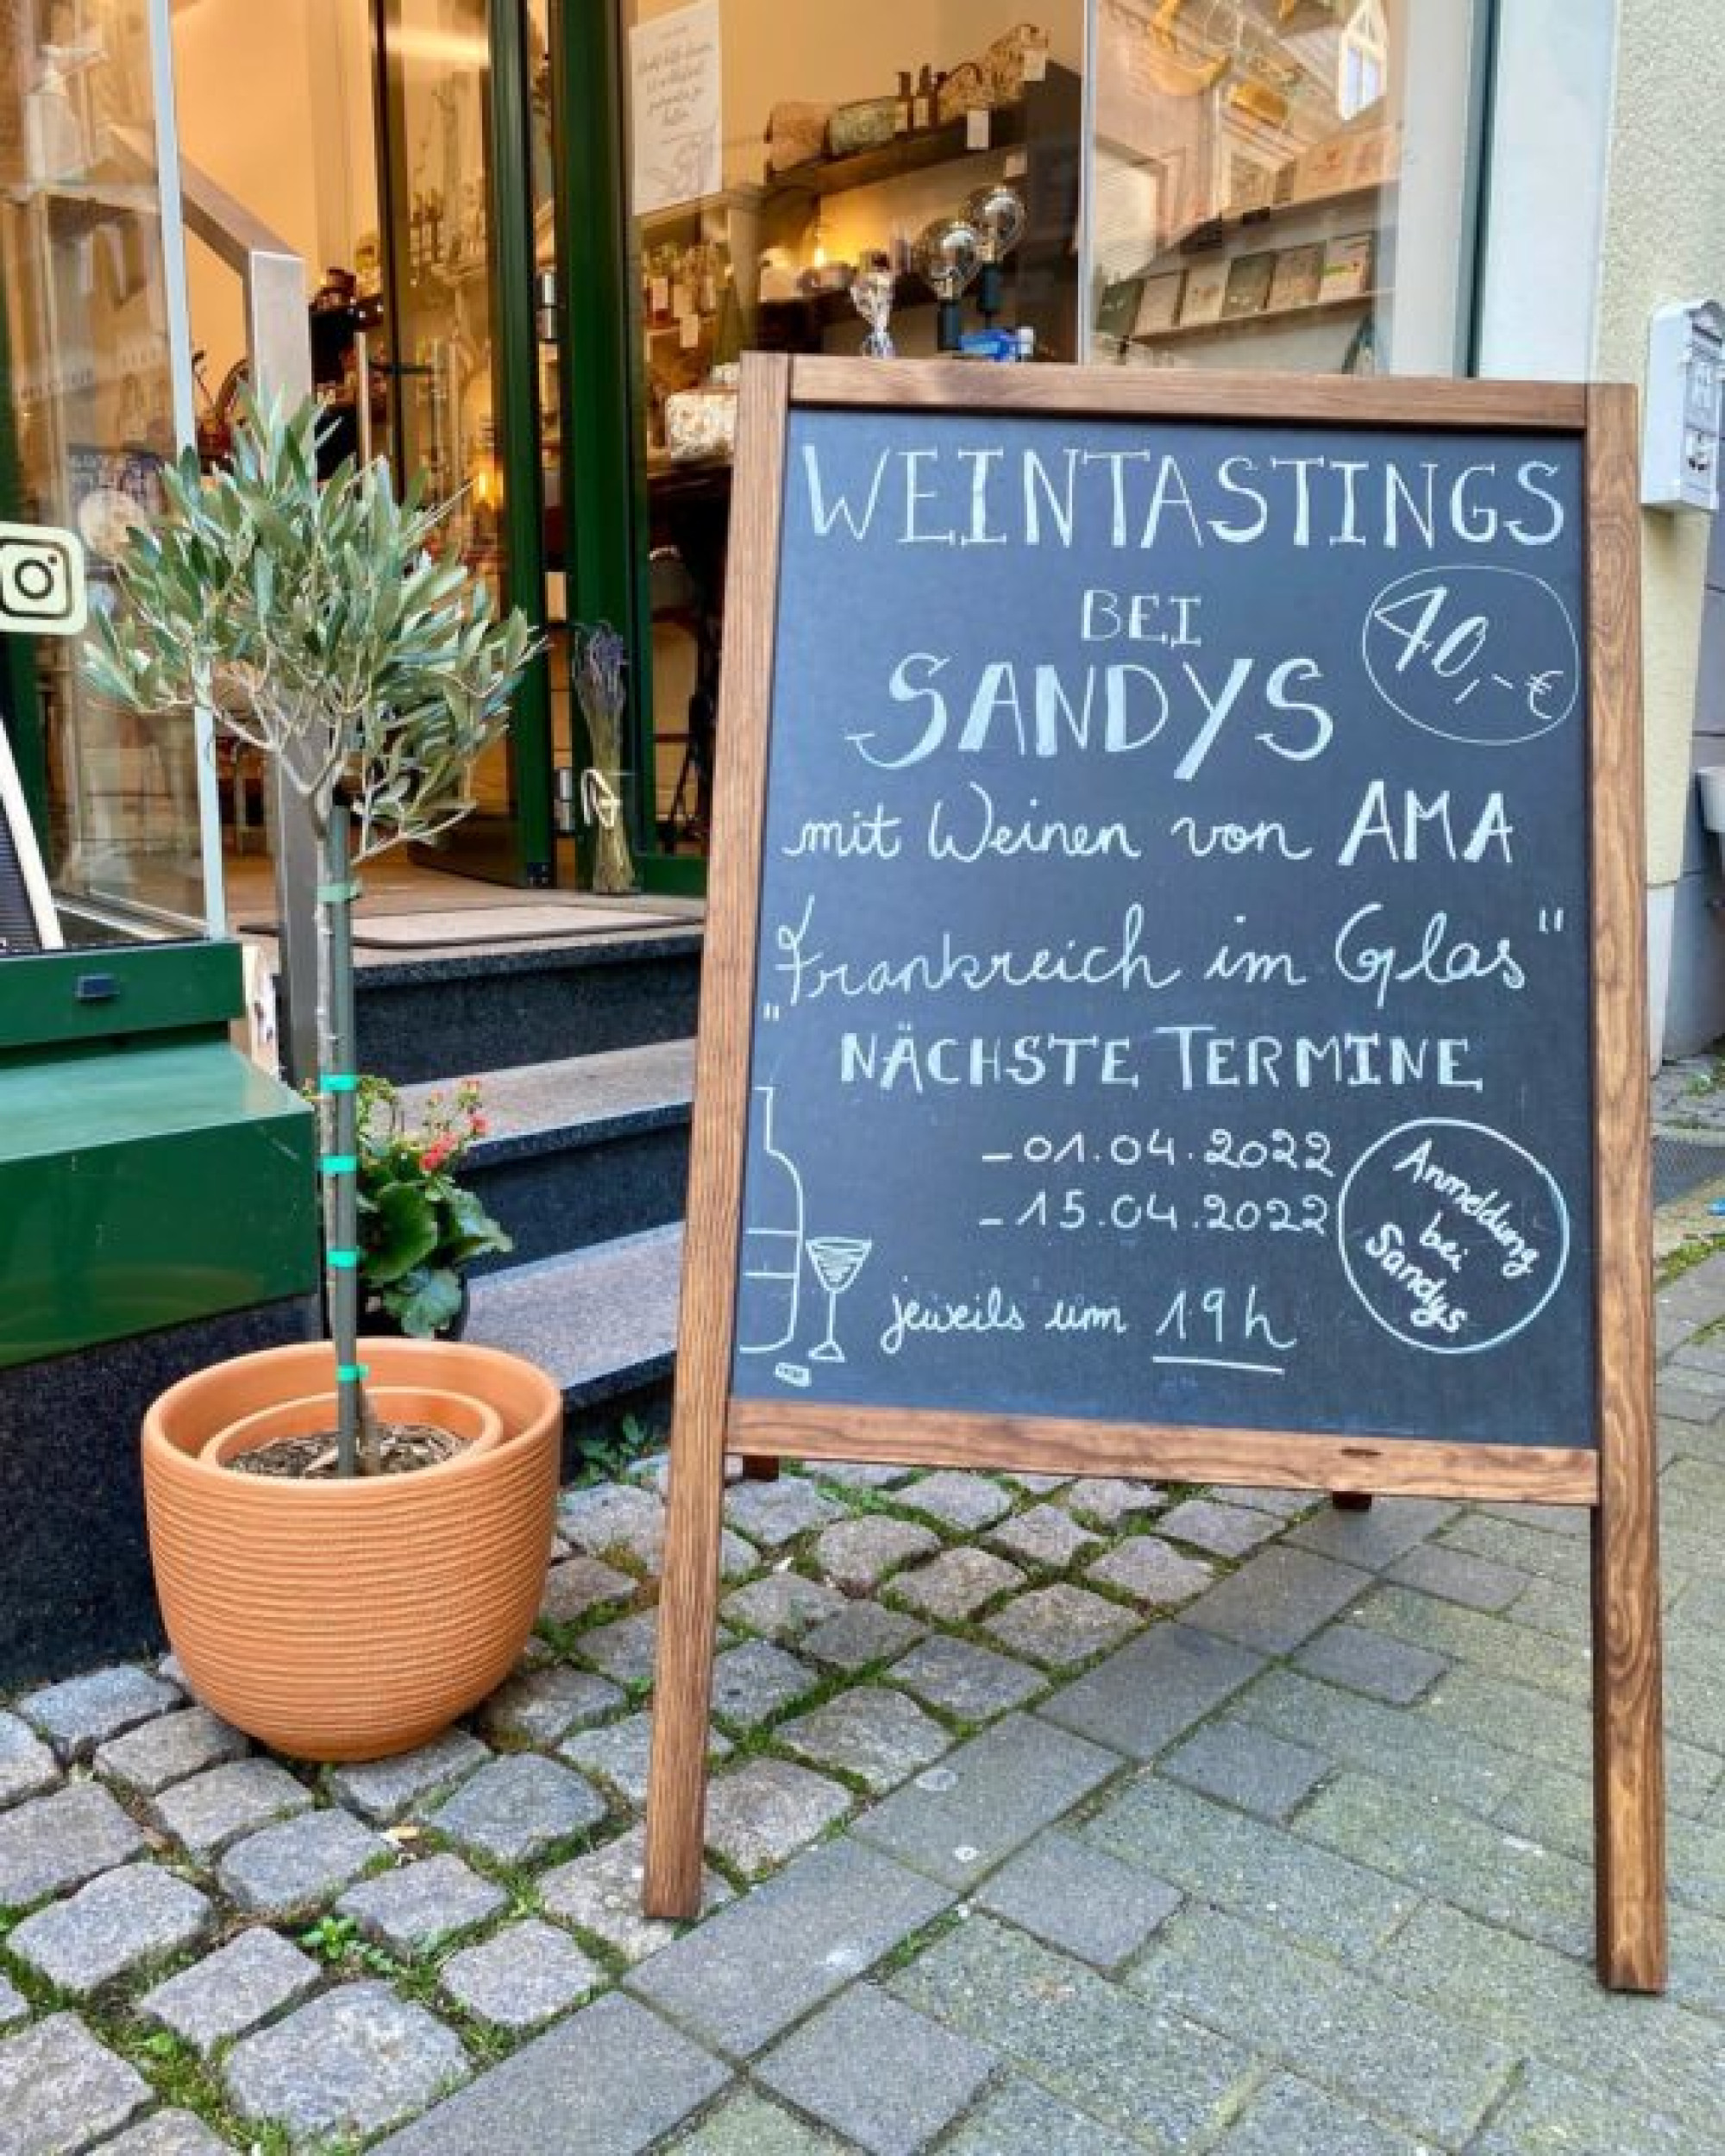 WEINTASTINGS
BEI
SANDYS
40,-€
mit Weinen von AMA
„Frankreich im Glas"
NÄCHSTE TERMINE
- 01.04.2022
- 15.04.2022
Anmeldung
bei
Sandys
jeweils um 19h